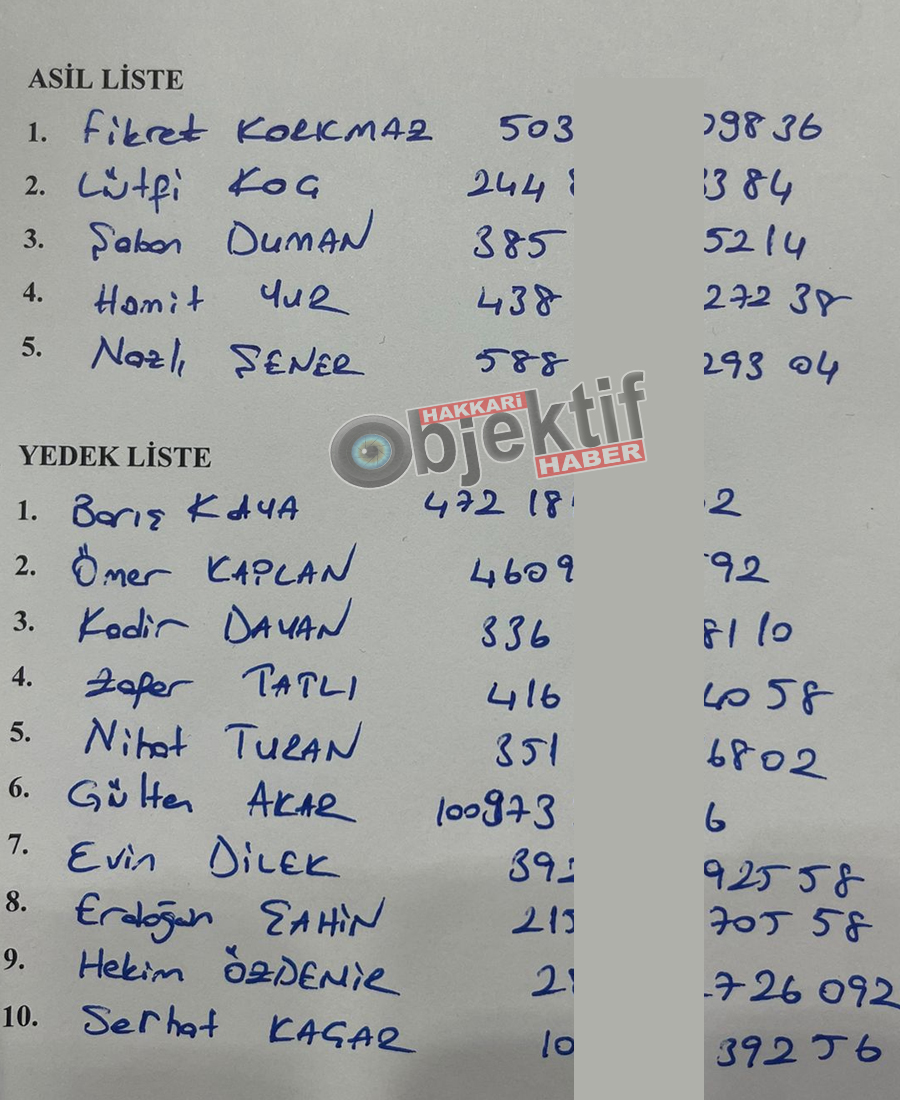 ASİL LİSTE
1. Fikret KORKMAZ 503 09836
2. Lütfi KOÇ 244 3384
3. Şaban DUMAN 385 5214
4. Hamit YUR 438 272 38
5. Nazlı ŞENER 588 293 04
HAKKARİ
Objektif
HABER
YEDEK LİSTE
1. Barış KAYA 472 18 2
2. Ömer KAPLAN 4609 92
3. Kadir DAYAN 336 8110
4. Zafer TATLI 416 4058
5. Nihat TURAN 351 6802
6. Gülten AKAR 100973 6
7. Evin DİLEK 392 925 58
8. Erdoğan ŞAHİN 215 705 58
9. Hekim ÖZDEMİR 2 726 092
10. Serhat KAÇAR 10 392 56